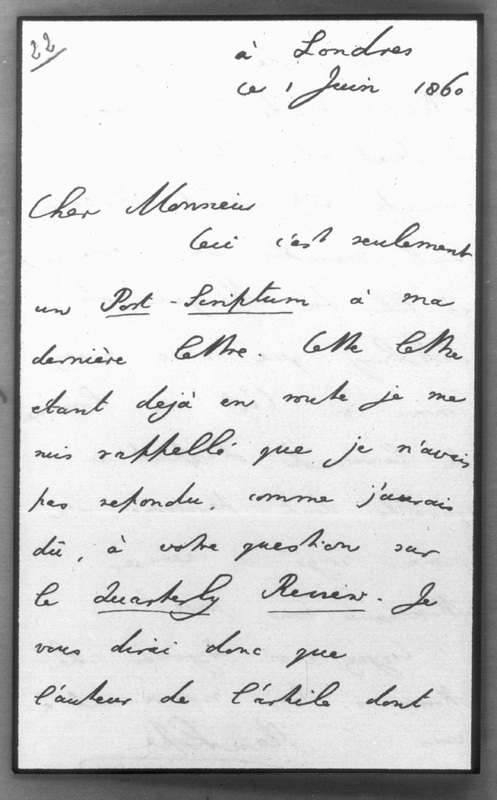 22
à Londres
ce 1 Juin 1860
Cher Monsieur
Ceci c'est seulement
un Post-Scriptum à ma
dernière lettre. Cette lettre
etant dejà en route je me
suis rappellé que je n'avais
pas repondu, comme j'aurais
dû, à votre question sur
le Quarterly Review. Je
vous dirai donc que
l'auteur de l'article dont